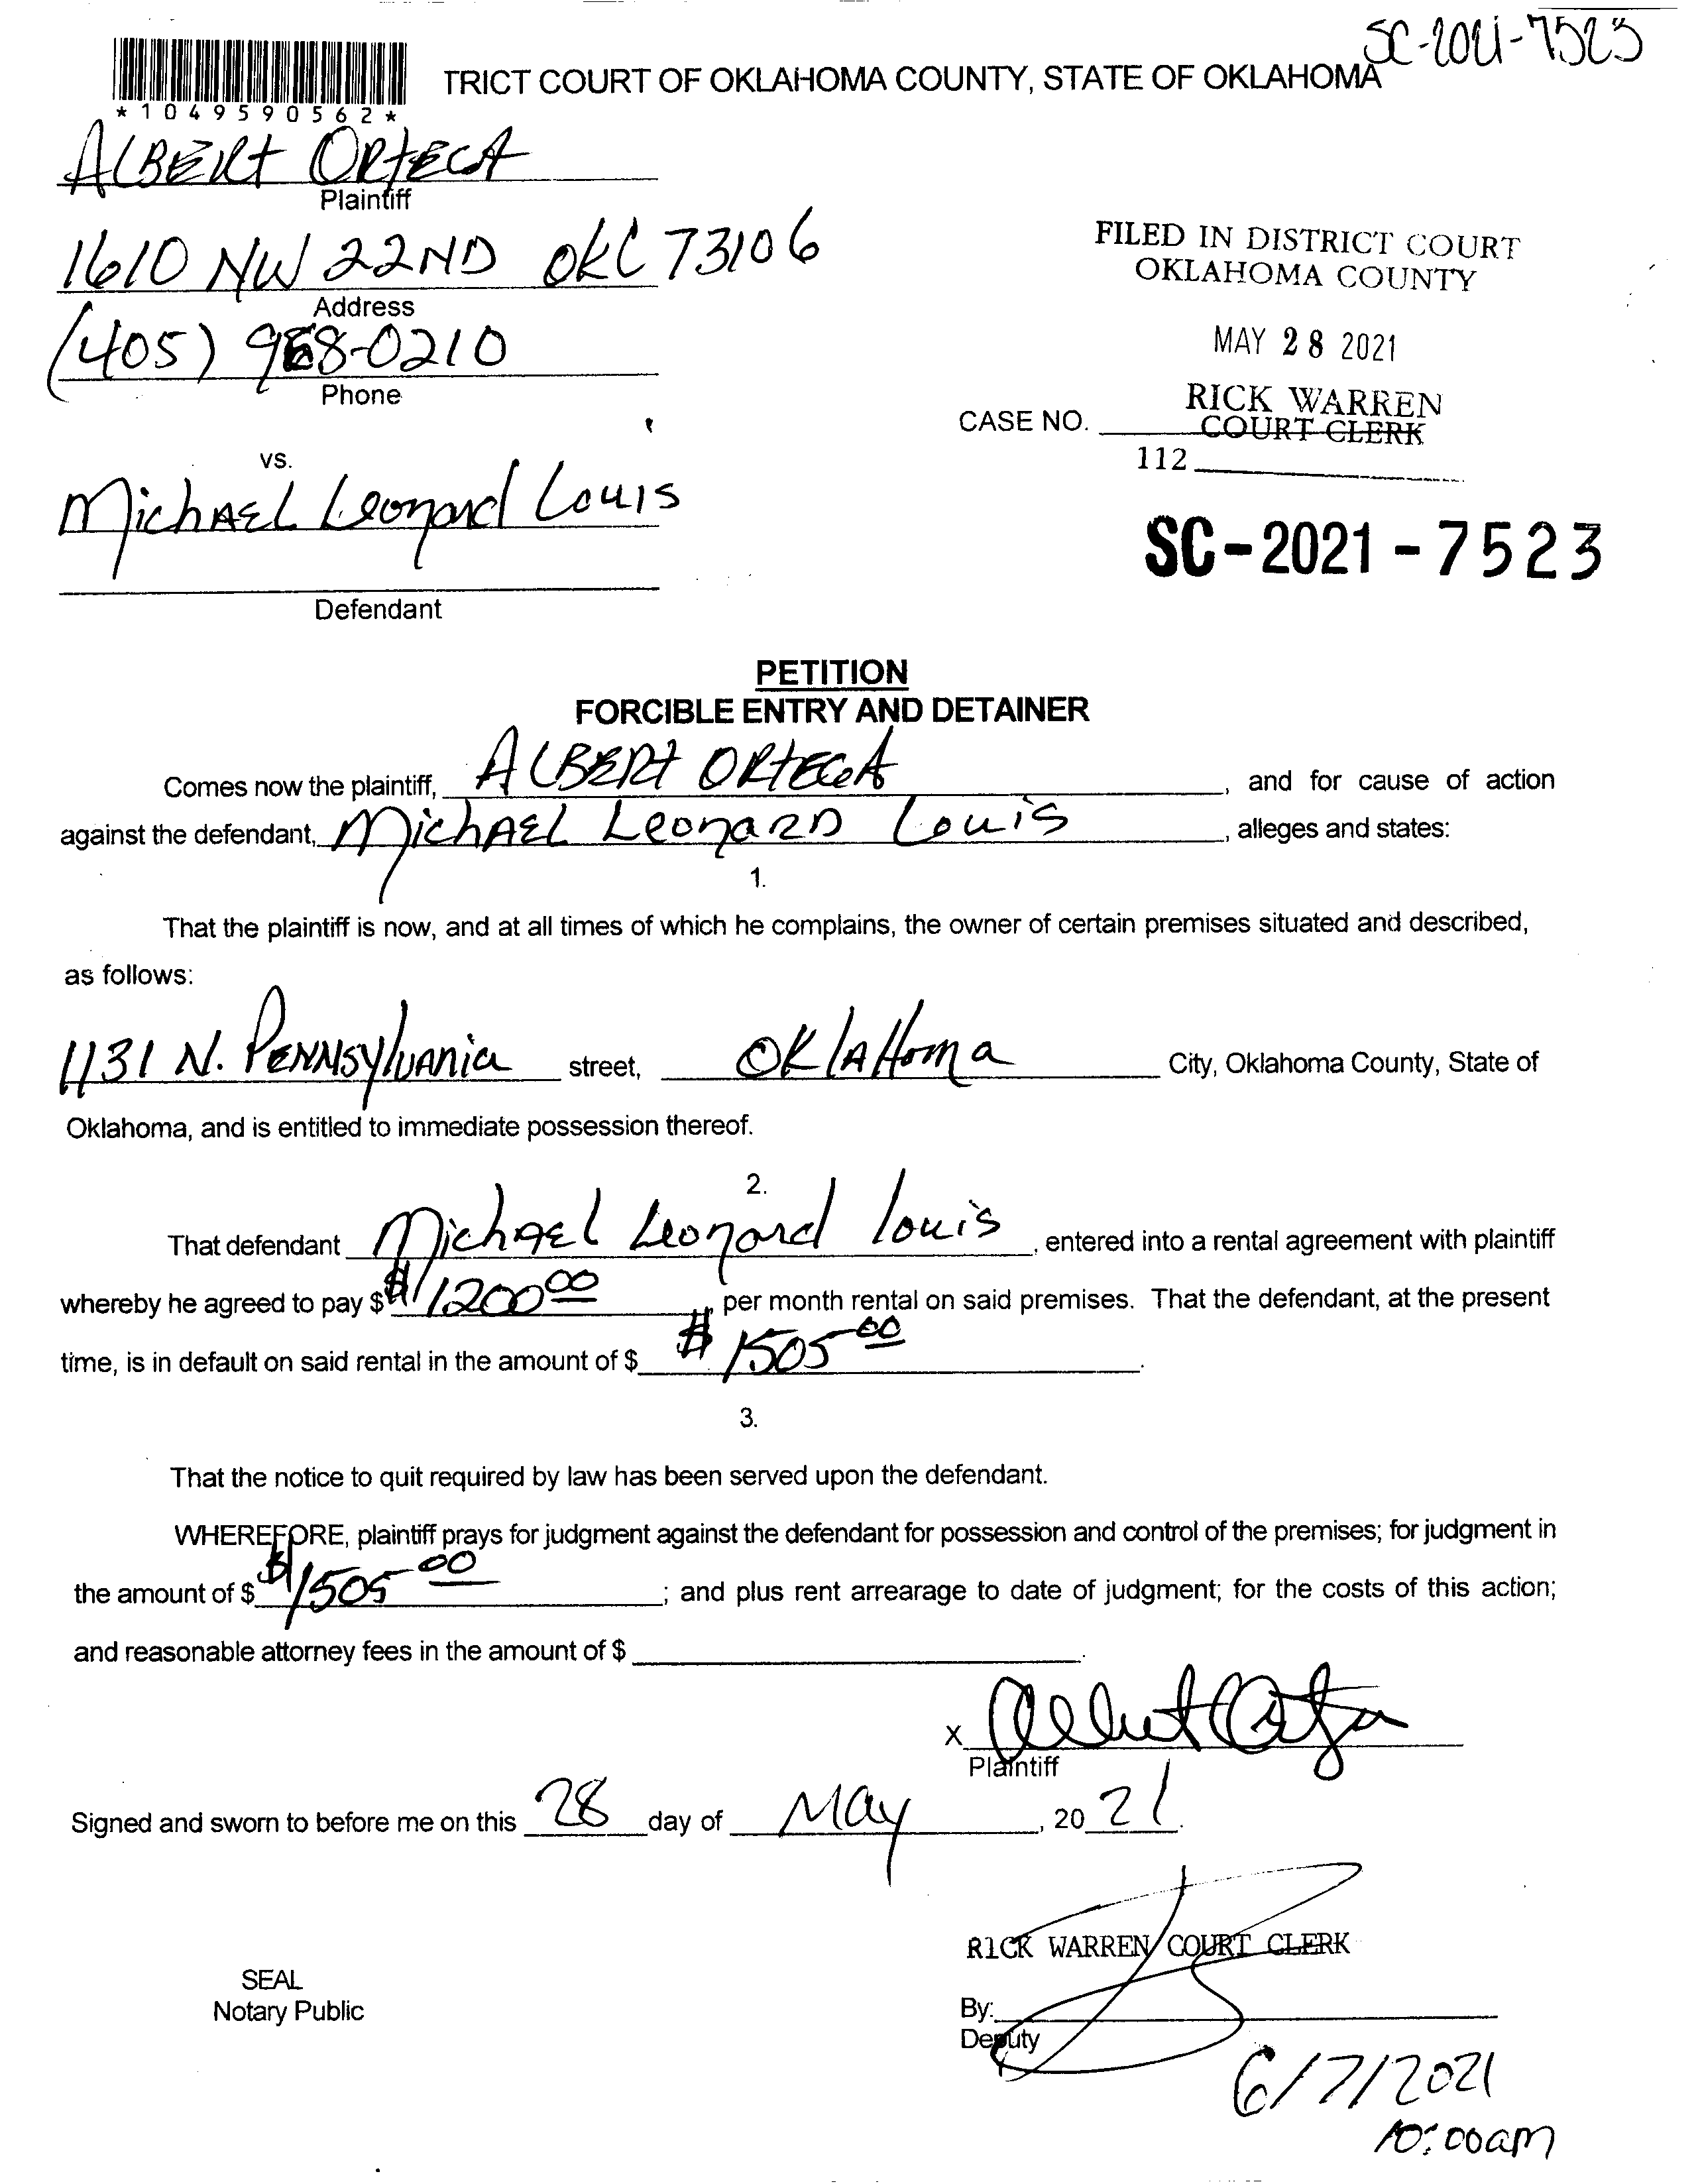 SC-2021-7523
TRICT COURT OF OKLAHOMA COUNTY, STATE OF OKLAHOMA
*1049590562*
ALBERT ORTEGA
Plaintiff
1610 NW 22ND OKC 73106
Address
FILED IN DISTRICT COURT
OKLAHOMA COUNTY
(405) 968-0210
Phone
MAY 28 2021
RICK WARREN
COURT CLERK
CASE NO.
112
vs.
Michael Leonard Louis
Defendant
SC-2021-7523
PETITION
FORCIBLE ENTRY AND DETAINER
Comes now the plaintiff, ALBERT ORTEGA, and for cause of action
against the defendant, Michael Leonard Louis, alleges and states:
1.
That the plaintiff is now, and at all times of which he complains, the owner of certain premises situated and described,
as follows:
1131 N. Pennsylvania street, Oklahoma City, Oklahoma County, State of
Oklahoma, and is entitled to immediate possession thereof.
2.
That defendant Michael Leonard Louis, entered into a rental agreement with plaintiff
whereby he agreed to pay $ $1200.00 per month rental on said premises. That the defendant, at the present
time, is in default on said rental in the amount of $ $1505.00.
3.
That the notice to quit required by law has been served upon the defendant.
WHEREFORE, plaintiff prays for judgment against the defendant for possession and control of the premises; for judgment in
the amount of $ $1505.00; and plus rent arrearage to date of judgment; for the costs of this action;
and reasonable attorney fees in the amount of $.
X Albert Ortega
Plaintiff
Signed and sworn to before me on this 28 day of May, 2021.
RICK WARREN COURT CLERK
SEAL
Notary Public
By:
Deputy
6/7/2021
10:00am